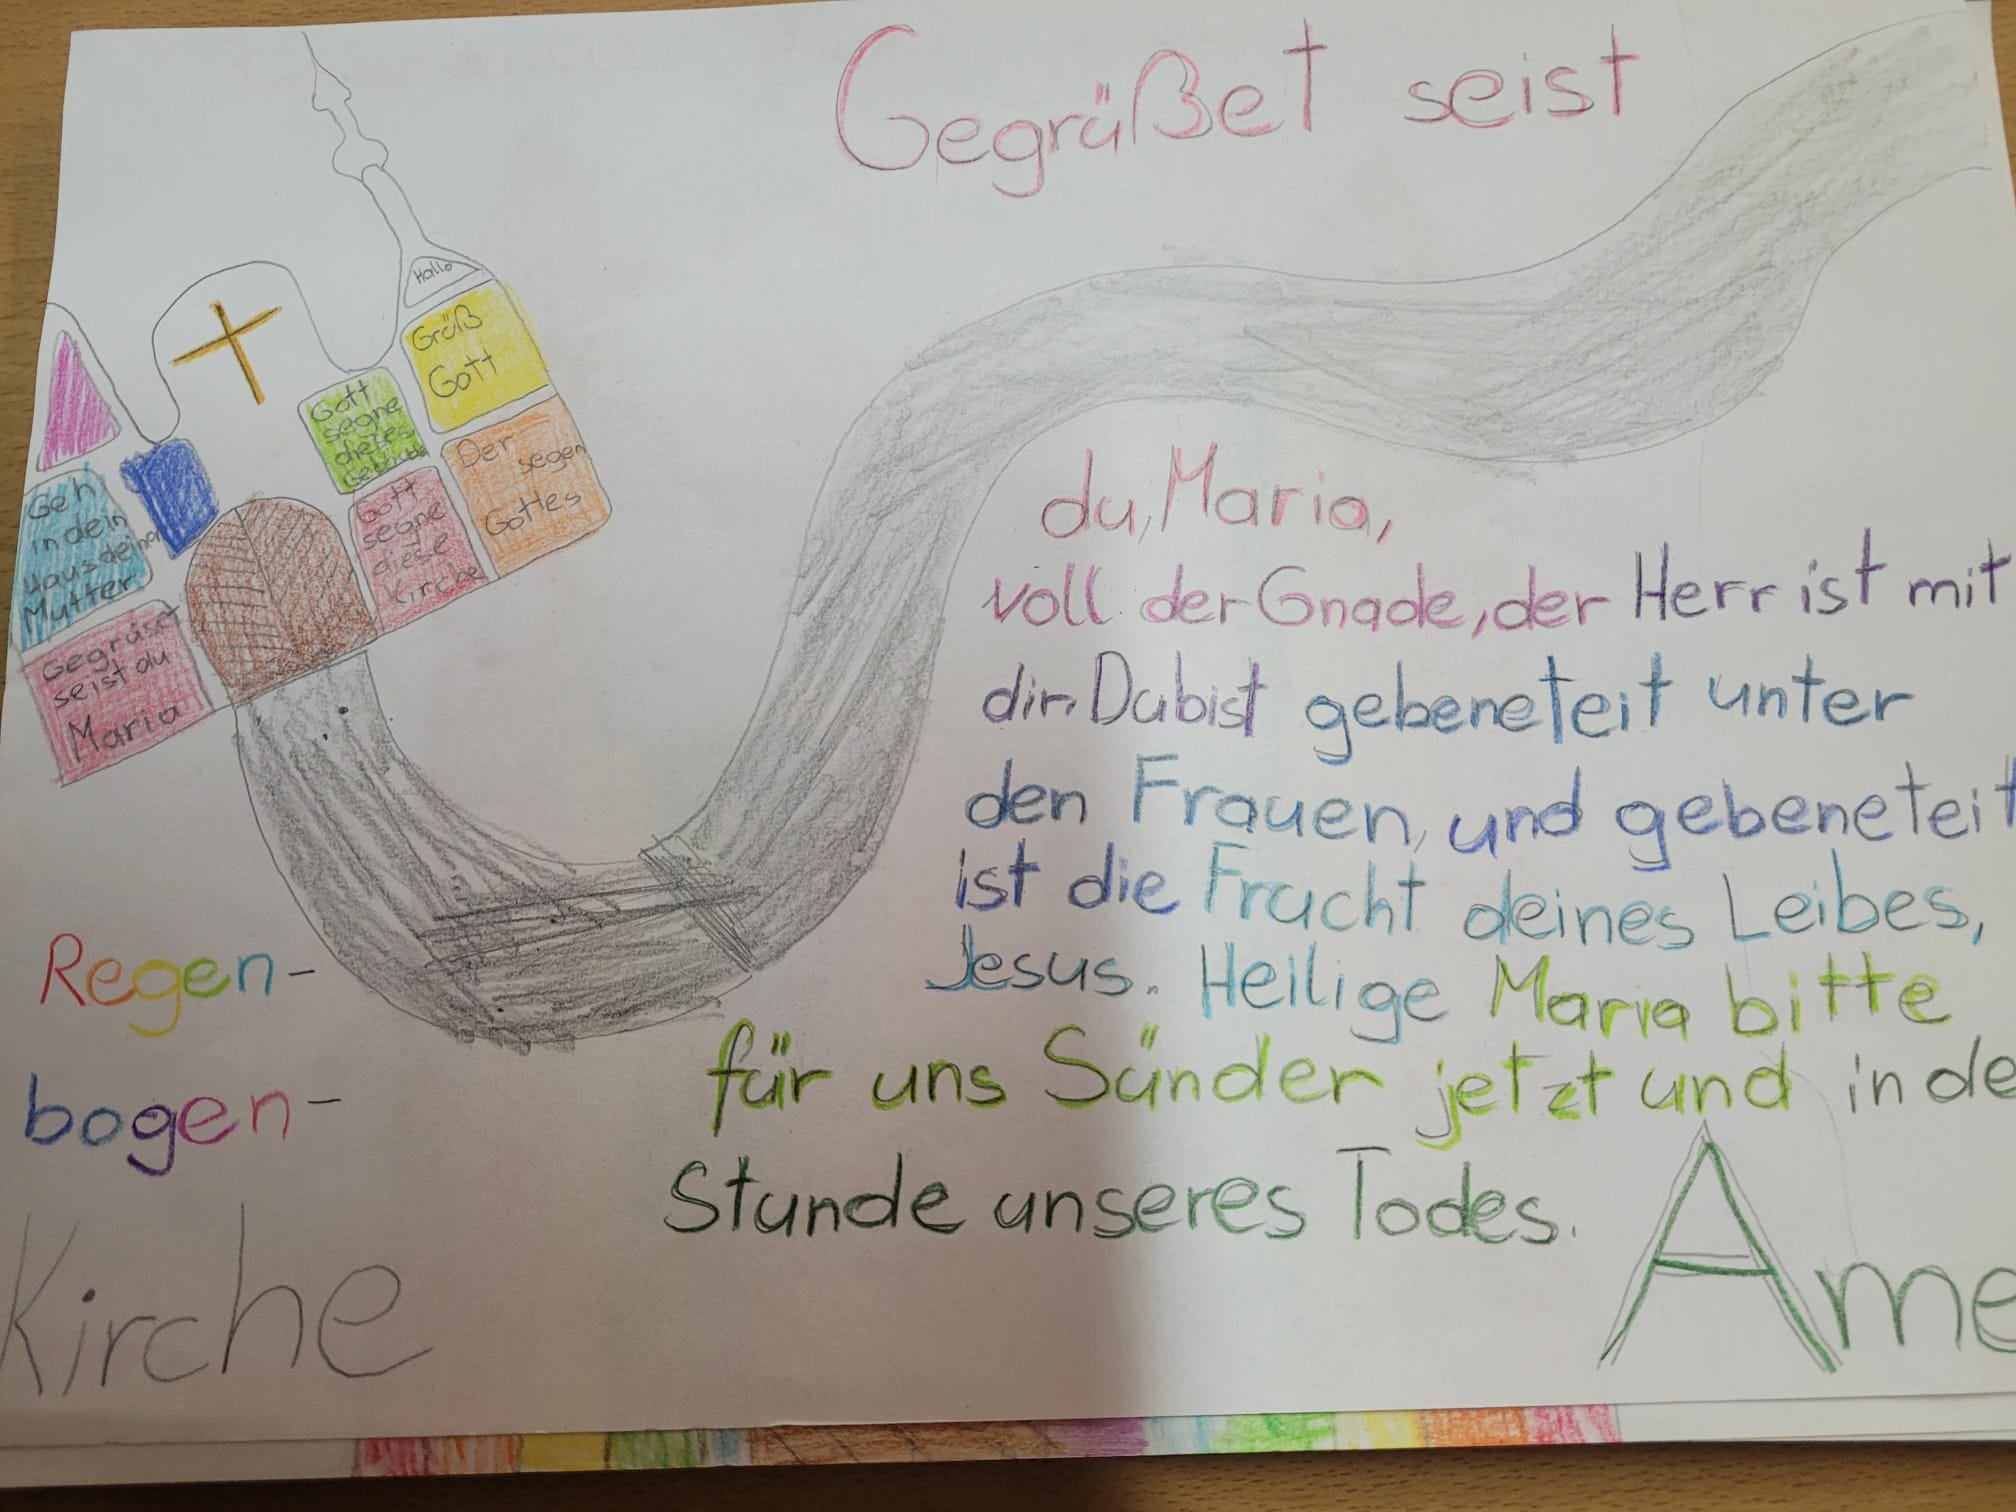 Gegrüßet seist
Hallo
Grüß
Gott
Gott
segne
dieses
Gebäude
Der
segen
Gottes
Geh
in dein
Haus deiner
Mutter
Gott
segne
diese
Kirche
Gegrüset
seist du
Maria
du, Maria,
voll der Gnade, der Herr ist mit
dir. Du bist gebeneteit unter
den Frauen, und gebeneteit
ist die Frucht deines Leibes,
Jesus. Heilige Maria bitte
für uns Sünder jetzt und in de
Stunde unseres Todes.
Ame
Regen-
bogen-
Kirche